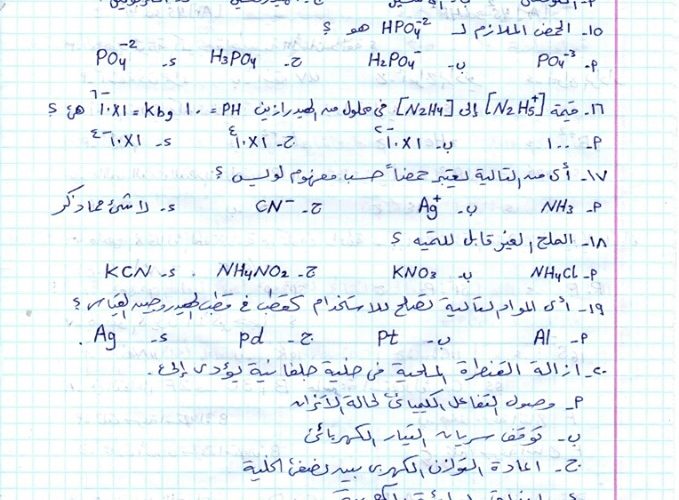 ١٥- الحمض الملازم لـ HPO₄⁻² هو ؟
P- PO₄⁻³ ب- H₂PO₄⁻ ج- H₃PO₄ د- PO₄⁻²
١٦- قيمة [N₂H₅⁺] إلى [N₂H₄] في محلول من الهيدرازين PH = ١٠ و Kb = ١×١٠⁻⁶ هي ؟
P- ١٠٠ ب- ١×١٠⁻² ج- ١×١٠⁴ د- ١×١٠⁻٤
١٧- أي من التالية يعتبر حمضاً حسب مفهوم لويس ؟
P- NH₃ ب- Ag⁺ ج- CN⁻ د- لا شئ مما ذكر
١٨- الملح الغير قابل للتميه ؟
P- NH₄Cl ب- KNO₃ ج- NH₄NO₂ د- KCN
١٩- أي المواد التالية تصلح للاستخدام كقطب في قطب الهيدروجين القياسي ؟
P- Al ب- Pt ج- pd د- Ag
٢٠- ازالة القنطرة الملحية في خلية جلفانية يؤدي إلى .
P- وصول التفاعل الكيميائي لحالة الاتزان
ب- توقف سريان التيار الكهربائي
ج- اعادة التوازن الكهربي بين نصفي الخلية